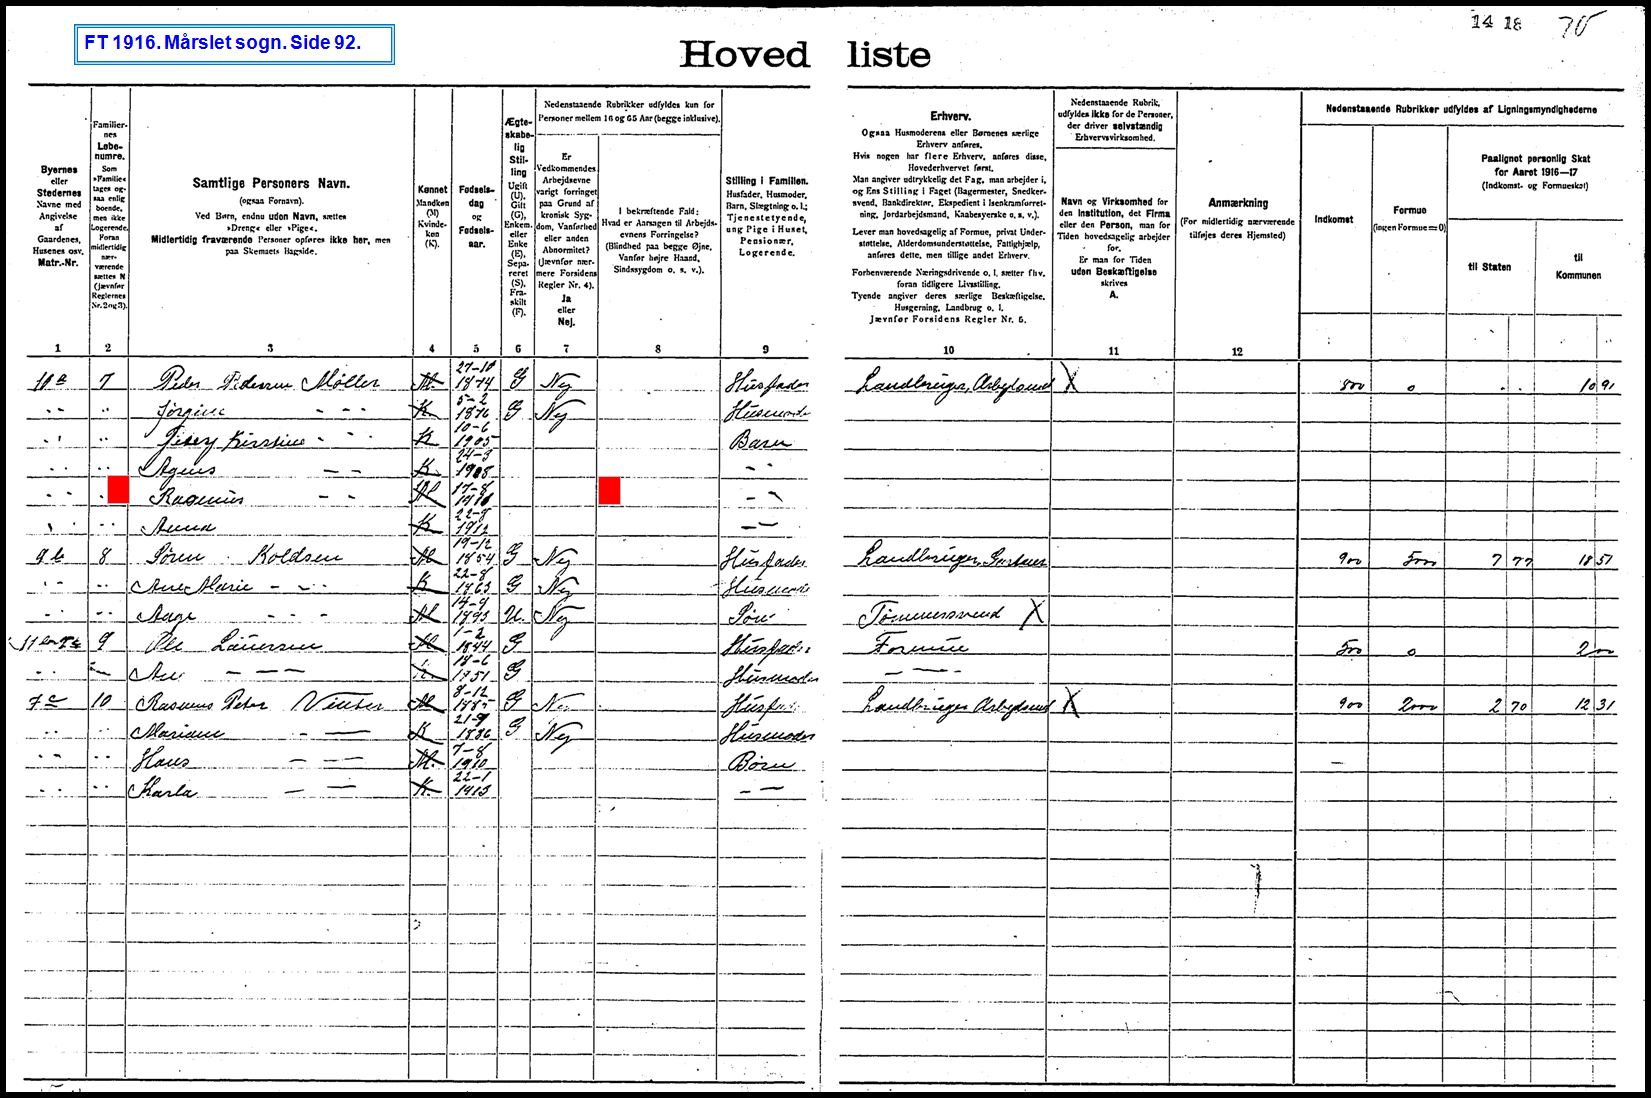 FT 1916. Mårslet sogn. Side 92.
14 18 75
Hoved liste
Byernes
eller
Stedernes
Navne med
Angivelse
af
Gaardenes,
Husenes osv.
Matr.-Nr.
Familier-
nes
Løbe-
numre.
Som
»Familie«
tages og-
saa enlig
boende,
men ikke
Logerende.
Foran
midlertidig
nær-
værende
sættes N
(Jævnfør
Reglernes
Nr. 2 og 3).
Samtlige Personers Navn.
(ogsaa Fornavn).
Ved Børn, endnu uden Navn, sættes
»Dreng« eller »Pige«.
Midlertidig fraværende Personer opføres ikke her, men
paa Skemaets Bagside.
Kønnet
Mandkøn
(M)
Kvinde-
køn
(K).
Fødsels-
dag
og
Fødsels-
aar.
Ægte-
skabe-
lig
Stil-
ling
Ugift
(U),
Gift
(G),
Enkem.
eller
Enke
(E),
Sepa-
reret
(S),
Fra-
skilt
(F).
Nedenstaaende Rubrikker udfyldes kun for
Personer mellem 16 og 65 Aar (begge inklusive).
Er
Vedkommendes
Arbejdsevne
varigt forringet
paa Grund af
kronisk Syg-
dom, Vanførhed
eller anden
Abnormitet?
(Jævnfør nær-
mere Forsidens
Regler Nr. 4).
Ja
eller
Nej.
I bekræftende Fald:
Hvad er Aarsagen til Arbejds-
evnens Forringelse?
(Blindhed paa begge Øjne,
Vanfør højre Haand,
Sindssygdom o. s. v.).
Stilling i Familien.
Husfader, Husmoder,
Barn, Slægtning o. l.;
Tjenestetyende,
ung Pige i Huset,
Pensionær,
Logerende.
Erhverv.
Ogsaa Husmoderens eller Børnenes særlige
Erhverv anføres.
Hvis nogen har flere Erhverv, anføres disse,
Hovederhvervet først.
Man angiver udtrykkelig det Fag, man arbejder i,
og Ens Stilling i Faget (Bagermester, Snedker-
svend, Bankdirektør, Ekspedient i Isenkramforret-
ning, Jordarbejdsmand, Kaabesyerske o. s. v.).
Lever man hovedsagelig af Formue, privat Under-
støttelse, Alderdomsunderstøttelse, Fattighjælp,
anføres dette, men tillige andet Erhverv.
Forhenværende Næringsdrivende o. l. sætter fhv.
foran tidligere Livsstilling.
Tyende angiver deres særlige Beskæftigelse,
Husgerning, Landbrug o. l.
Jævnfør Forsidens Regler Nr. 6.
Nedenstaaende Rubrik,
udfyldes ikke for de Personer,
der driver selvstændig
Erhvervsvirksomhed.
Navn og Virksomhed for
den Institution, det Firma
eller den Person, man for
Tiden hovedsagelig arbejder
for.
Er man for Tiden
uden Beskæftigelse
skrives
A.
Anmærkning
(For midlertidig nærværende
tilføjes deres Hjemsted)
Nedenstaaende Rubrikker udfyldes af Ligningsmyndighederne
Indkomst
Formue
(ingen Formue = 0)
Paalignet personlig Skat
for Aaret 1916—17
(Indkomst- og Formueskat)
til Staten
til
Kommunen
1 2 3 4 5 6 7 8 9 10 11 12
7 Peder Pedersen Møller M. 27-10 1874 G Nej Husfader Landbruger, Arbejdsmd X 800 0 10 91
Jørgine K. 5-2 1876 G Nej Husmoder
Kirstine K 10-6 1905 Barn
Agnes K. 24-3 1908
Rasmus M 17-8
Anna K 22-8 1912
9 b 8 Søren Koldsen M 19-12 1854 G Nej Husfader Landbruger, 900 5000 7 77 18 51
Ane Marie K 22-8 1863 G Nej Husmoder
Aage M 1893 U. Nej Søn Tømmersvend X
9 Ole Laursen M 1-2 1844 G Husfader Formue 500 0 2 00
Ane K. 18-6 1851 G Husmoder
7 c 10 Rasmus Peter Vinter M 8-12 1885 G Nej Husfader Landbruger Arbejdsmd X 900 2000 2 70 12 31
Mariane K 21-9 1886 G Nej Husmoder
Hans M. 7-8 1910 Børn
Karla K. 22-1 1913